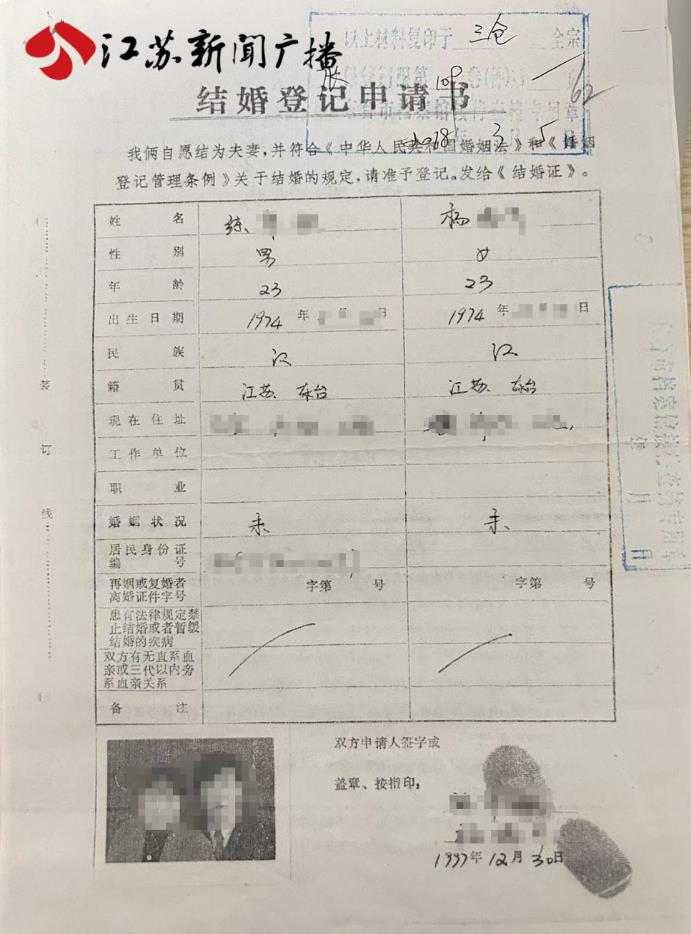 江苏新闻广播
以上材料复印于 三仓 全宗
109
62
2018 3 5
结婚登记申请书
我俩自愿结为夫妻,并符合《中华人民共和国婚姻法》和《婚姻
登记管理条例》关于结婚的规定,请准予登记。发给《结婚证》。
姓名 杨
性别 男 女
年龄 23 23
出生日期 1974 年 日 1974 年 日
民族 汉 汉
籍贯 江苏 东台 江苏 东台
现在住址
工作单位
职业
婚姻状况 未 未
居民身份证
编号
再婚或复婚者
离婚证件字号 字第 号 字第 号
患有法律规定禁
止结婚或者暂缓
结婚的疾病
双方有无直系血
亲或三代以内旁
系血亲关系
备注
装
订
线
双方申请人签字或
盖章、按指印:
1997年12月30日